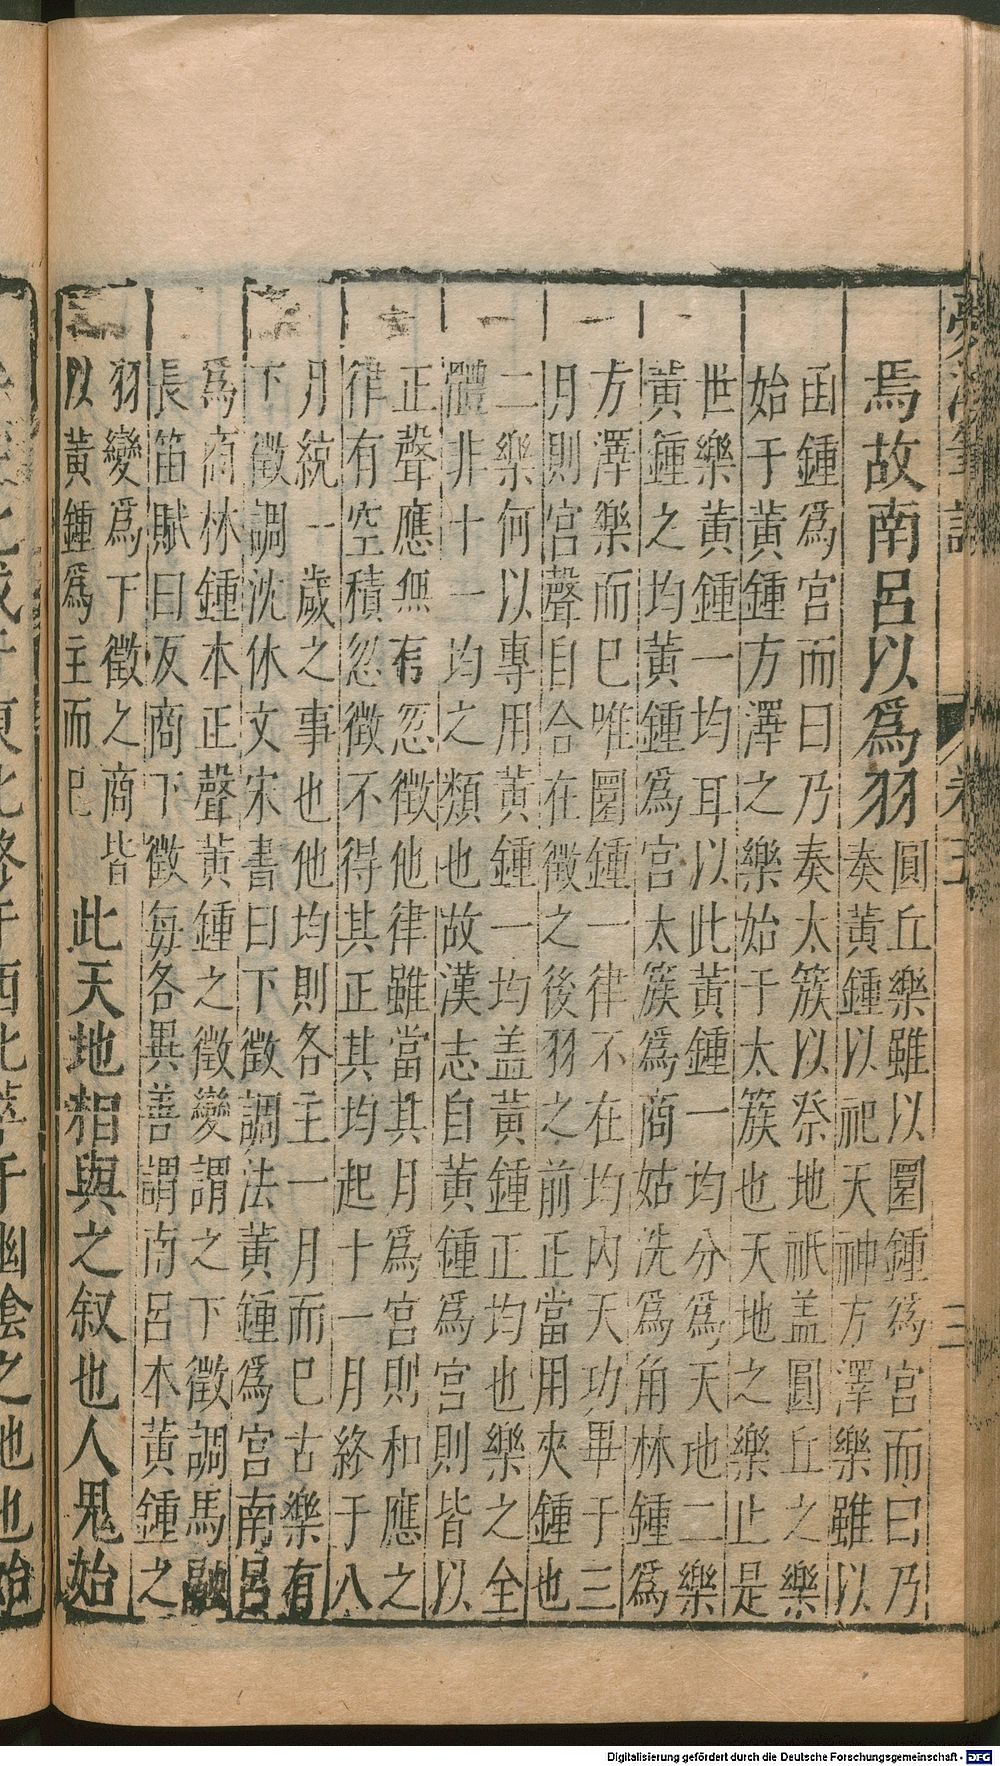 焉故南呂以爲羽
圓丘樂雖以圜鍾爲宮而曰乃
奏黃鍾以祀天神方澤樂雖以
函鍾爲宮而曰乃奏太簇以祭地祇盖圓丘之樂
始于黃鍾方澤之樂始于太簇也天地之樂止是
世樂黃鍾一均耳以此黃鍾一均分爲天地二樂
黃鍾之均黃鍾爲宮太簇爲商姑洗爲角林鍾爲
方澤樂而巳唯圜鍾一律不在均內天功畢于三
月則宮聲自合在徵之後羽之前正當用夾鍾也
二樂何以專用黃鍾一均盖黃鍾正均也樂之全
體非十一均之類也故漢志自黃鍾爲宮則皆以
正聲應無有忽徵他律雖當其月爲宮則和應之
律有空積忽徵不得其正其均起十一月終于八
月統一歲之事也他均則各主一月而巳古樂有
下徵調沈休文宋書曰下徵調法黃鍾爲宮南呂
爲商林鍾本正聲黃鍾之徵變謂之下徵調馬融
長笛賦曰反商下徵每各異善謂南呂本黃鍾之
羽變爲下徵之商皆
以黃鍾爲主而巳
此天地相與之叙也人鬼始
卷五
三
Digitalisierung gefördert durch die Deutsche Forschungsgemeinschaft - DFG